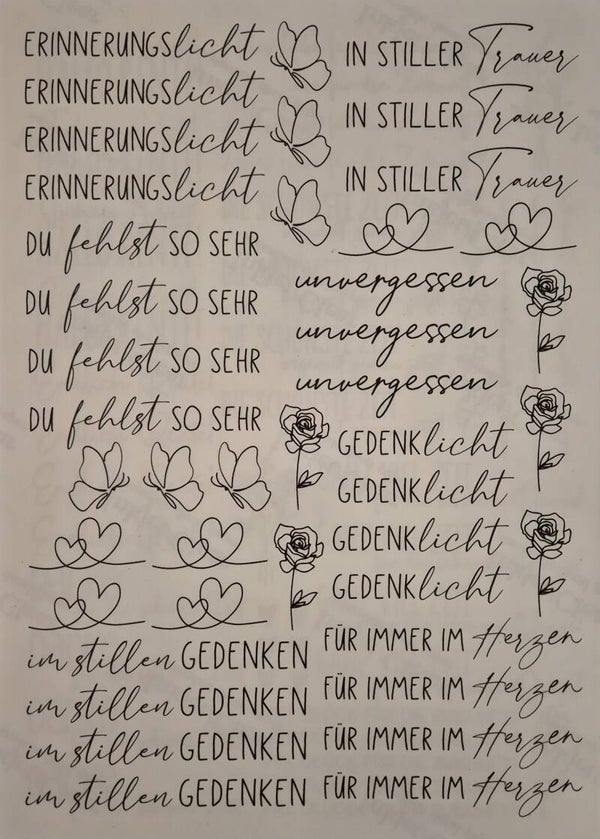 ERINNERUNGSlicht
ERINNERUNGSlicht
ERINNERUNGSlicht
ERINNERUNGSlicht
DU fehlst SO SEHR
DU fehlst SO SEHR
DU fehlst SO SEHR
DU fehlst SO SEHR
im stillen GEDENKEN
im stillen GEDENKEN
im stillen GEDENKEN
im stillen GEDENKEN
IN STILLER Trauer
IN STILLER Trauer
IN STILLER Trauer
unvergessen
unvergessen
unvergessen
GEDENKlicht
GEDENKlicht
GEDENKlicht
GEDENKlicht
FÜR IMMER IM Herzen
FÜR IMMER IM Herzen
FÜR IMMER IM Herzen
FÜR IMMER IM Herzen